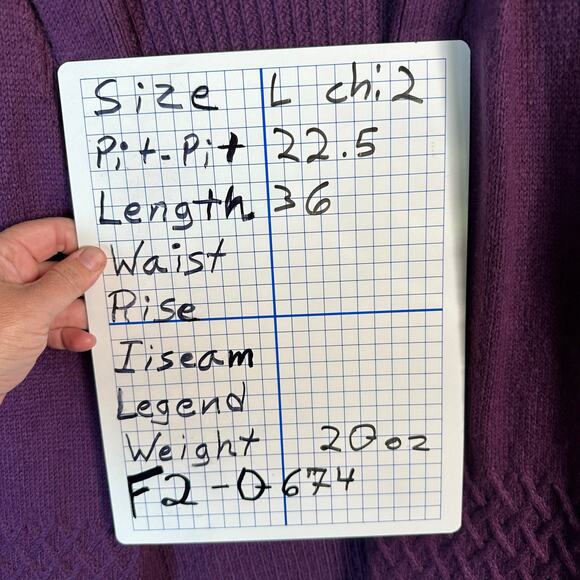 Size L chi2
Pit-Pit 22.5
Length 36
Waist
Rise
Iiseam
Legend
Weight 20oz
F2-0674